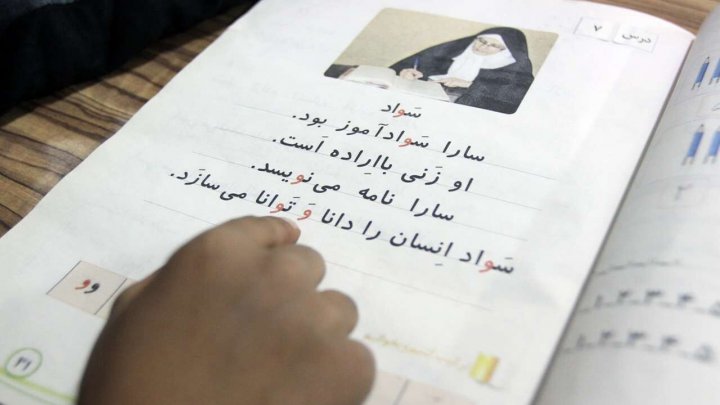 درس ۷
سَواد
سارا سَوادآموز بود.
او زَنی بااِراده اَست.
سارا نامه می‌نویسد.
سَواد اِنسان را دانا وَ تَوانا می‌سازَد.
و و
۳۱